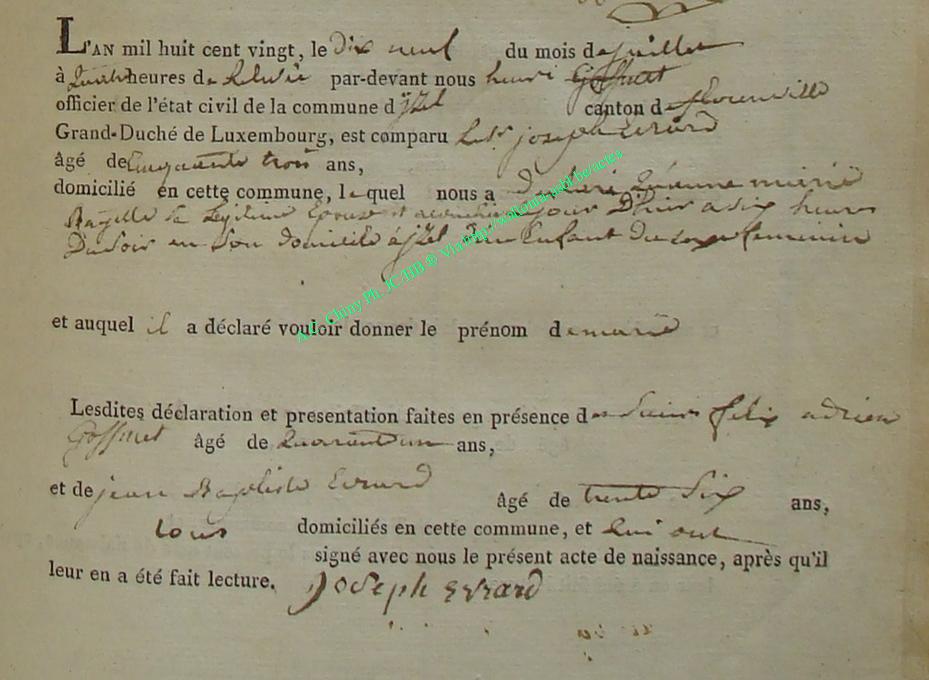 L'AN mil huit cent vingt, le Dix neuf du mois de juillet
à heures de Relevée par-devant nous henri Goffinet
officier de l'état civil de la commune d'jzel canton de florenville
Grand-Duché de Luxembourg, est comparu joseph Evrard
âgé de Cinquante trois ans,
domicilié en cette commune, lequel nous a marie
Sa Legitime Epouse est accouchée jour D'huir a six heures
Du soir en Son domicile à jzel D'un Enfant du sexe feminin
et auquel il a déclaré vouloir donner le prénom de marie
Lesdites déclaration et presentation faites en présence de felix adrien
Goffinet âgé de quarante un ans,
et de jean Baptiste Evrard âgé de trente Six ans,
tous domiciliés en cette commune, et qui ont
signé avec nous le présent acte de naissance, après qu'il
leur en a été fait lecture. Joseph Evrard
A.E. Cluny Ph. JC/HB © Via http://nationaa.publ.be/actes